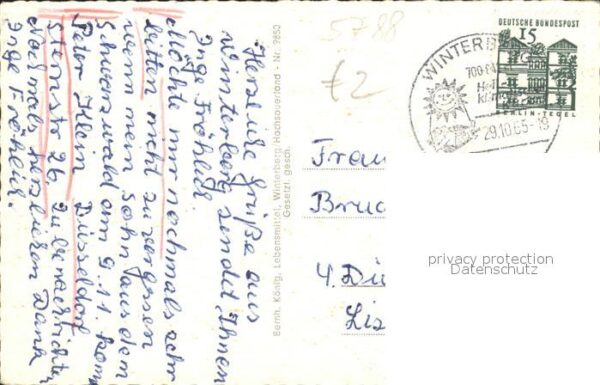 Herzliche Grüße aus
Winterberg sendet Ihnen
Inge Fröhlich.
Möchte nur nochmals sehr
bitten nicht zu vergessen
wenn mein Sohn aus dem
Schwarzwald am 9.11 kommt
Peter Klein Düsseldorf
Steinstr 26 zu benachrichten
Nochmals herzlichen Dank
Inge Fröhlich.
Bernh. König, Lebensmittel, Winterberg Hochsauerland - Nr. 9853
Gesetzl. gesch.
5788
£2
DEUTSCHE BUNDESPOST
15
BERLIN-TEGEL
WINTERB
700
29.10.65-18
Frau
Bruc
4. Dü
Lis
privacy protection
Datenschutz